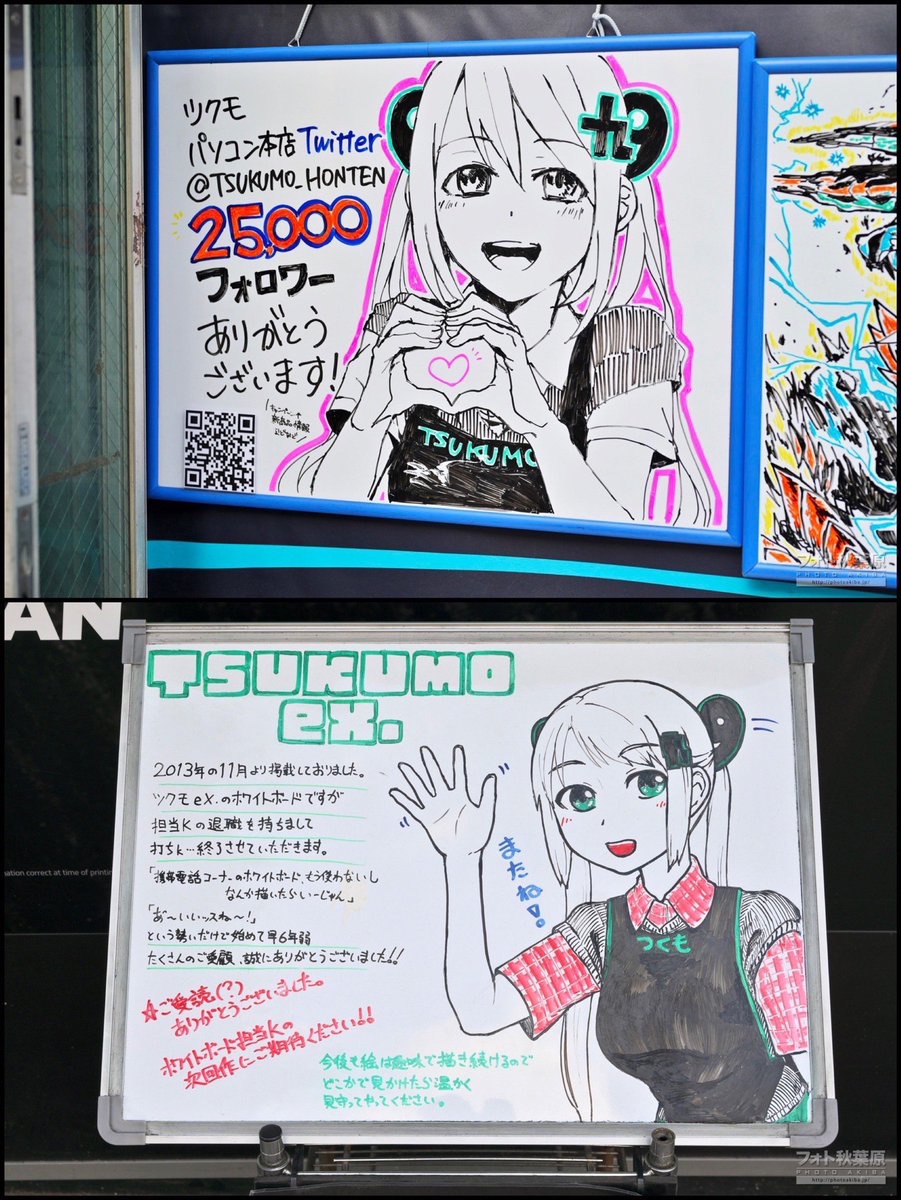 ツクモ
パソコン本店Twitter
@TSUKUMO_HONTEN
25,000
フォロワー
ありがとう
ございます!
キャンペーンや
新商品情報
などなど
九
TSUKUMO
フォト秋葉原
http://photoakiba.jp/
AN
TSUKUMO
eX.
2013年の11月より掲載しておりました。
ツクモeX.のホワイトボードですが
担当Kの退職を持ちまして
打ちk…終了させていただきます。
「携帯電話コーナーのホワイトボード、もう使わないし
なんか描いたらいーじゃん」
「あ〜いいッスね〜!」
という勢いだけで始めて早6年弱
たくさんのご愛顧、誠にありがとうございました!!
☆ご愛読(?)
ありがとうございました。
ホワイトボード担当Kの
次回作にご期待ください!!
今後も絵は趣味で描き続けるので
どこかで見かけたら温かく
見守ってやってください。
またね!
つくも
mation correct at time of printing
フォト秋葉原
PHOTO AKIBA
http://photoakiba.jp/